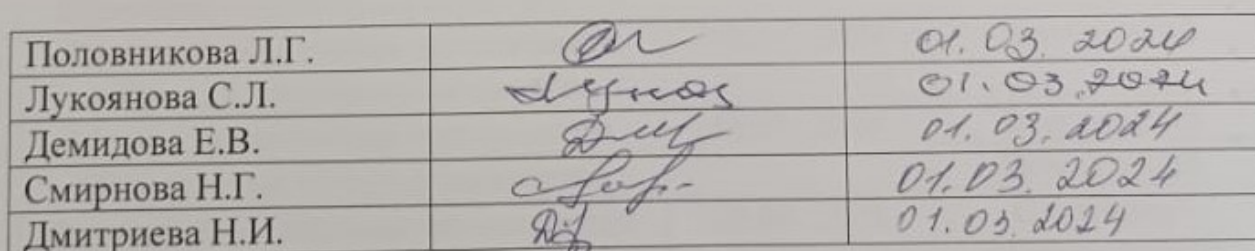 Половникова Л.Г. 01.03.2024
Лукоянова С.Л. 01.03.2024
Демидова Е.В. 01.03.2024
Смирнова Н.Г. 01.03.2024
Дмитриева Н.И. 01.03.2024